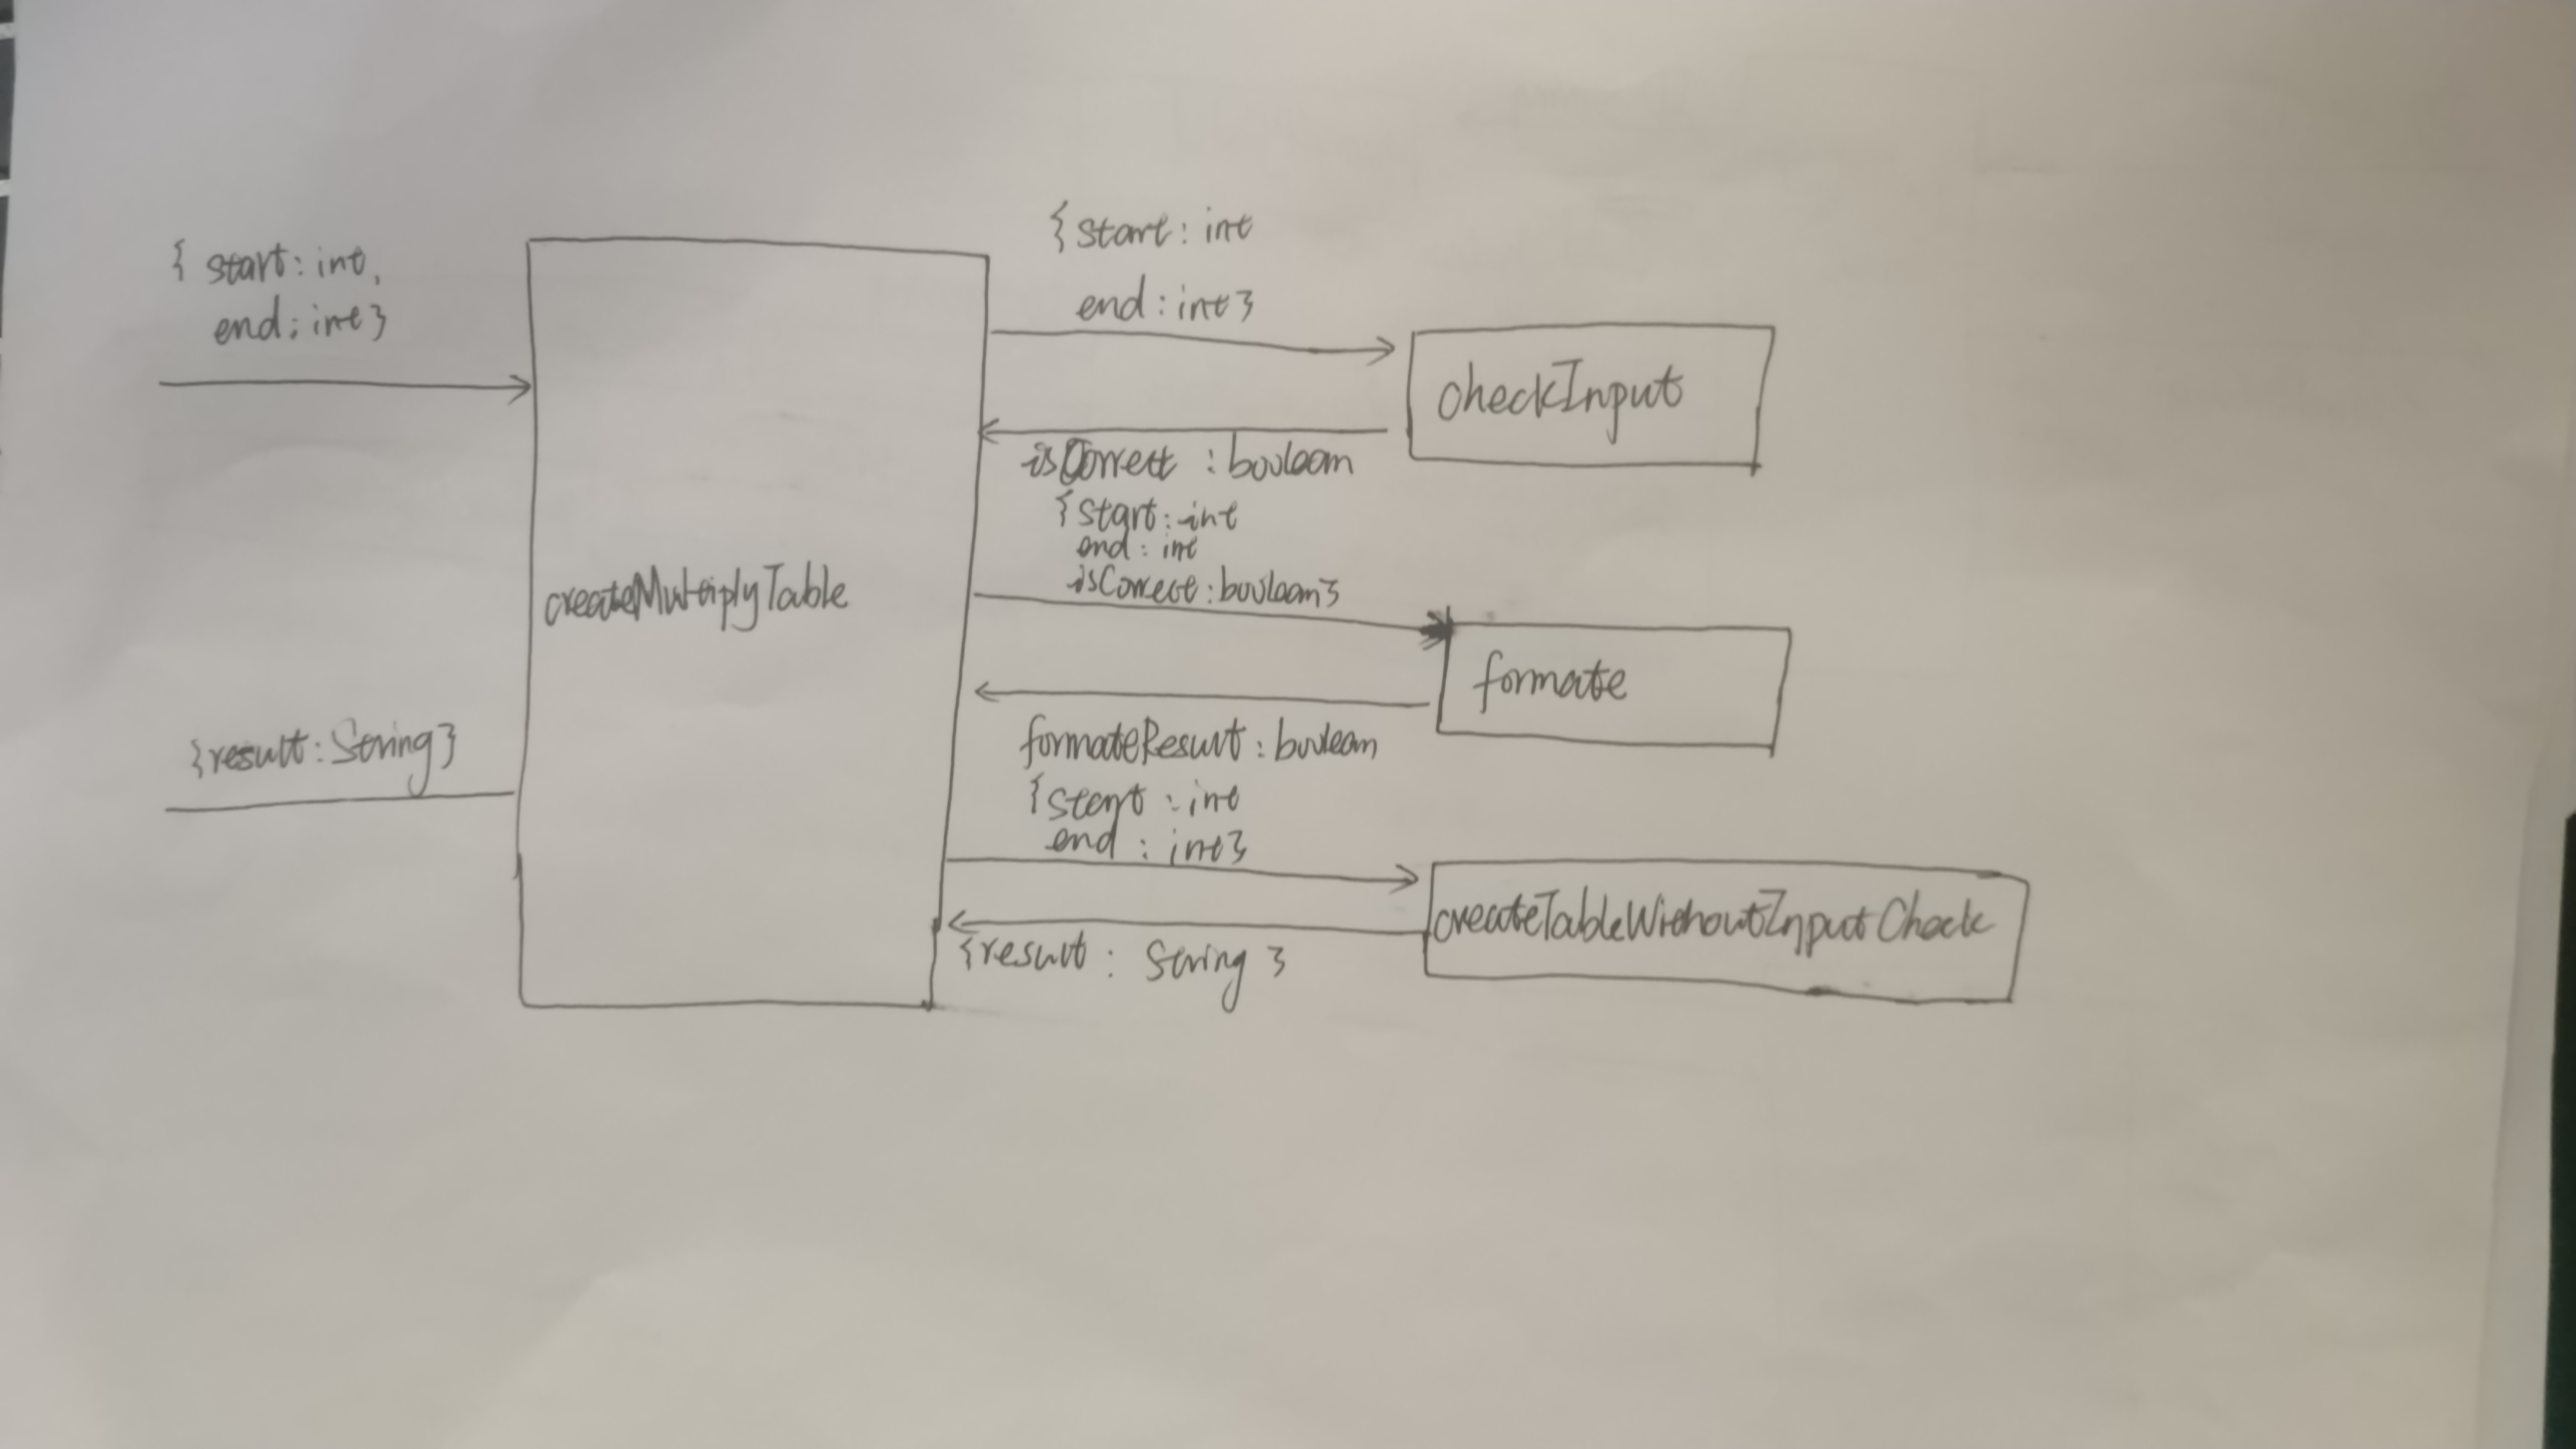 { start : int ,
end : int }
{result : String}
createMultiplyTable
{ start : int
end : int }
isCorrect : boolean
{ start : int
end : int
isCorrect : boolean}
formateResult : boolean
{ start : int
end : int}
{result : String }
checkInput
formate
createTableWithoutInputCheck